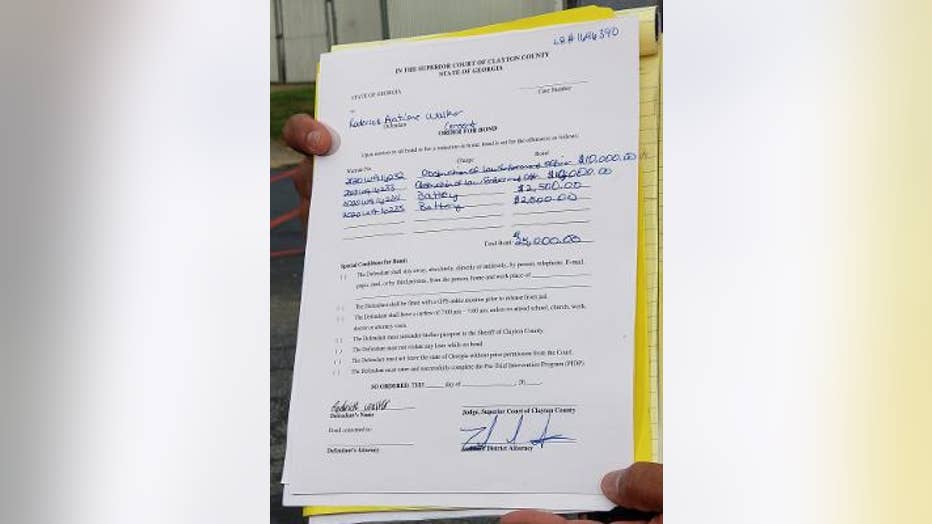 LE# 1696390
IN THE SUPERIOR COURT OF CLAYTON COUNTY
STATE OF GEORGIA
STATE OF GEORGIA
Case Number
Roderick Walker
Defendant
Consent
ORDER FOR BOND
Bond is set for the offenses as follows:
Charge Bond
Obstruction of Law Enforcement $10,000.00
Obstruction of Law $10,000.00
Battery $2,500.00
Battery $2,500.00
Total Bond: $25,000.00
Special Conditions for Bond:
( ) The Defendant shall stay away, absolutely, directly or indirectly, by person, telephone, E-mail,
pager, mail, or by third persons, from the person, home and work place of
( ) The Defendant shall be fitted with a GPS ankle monitor prior to release from jail.
( ) The Defendant shall have a curfew of 7:00 pm – 7:00 am, unless to attend school, church, work,
doctor or attorney visits.
( ) The Defendant must surrender his/her passport to the Sheriff of Clayton County.
( ) The Defendant may not violate any laws while on bond.
( ) The Defendant must not leave the state of Georgia without prior permission from the Court.
( ) The Defendant must enter and successfully complete the Pre-Trial Intervention Program
SO ORDERED, THIS day of , 20
Roderick Walker
Defendant's Name
Judge, Superior Court of Clayton County
Bond consented to:
Defendant's Attorney
District Attorney